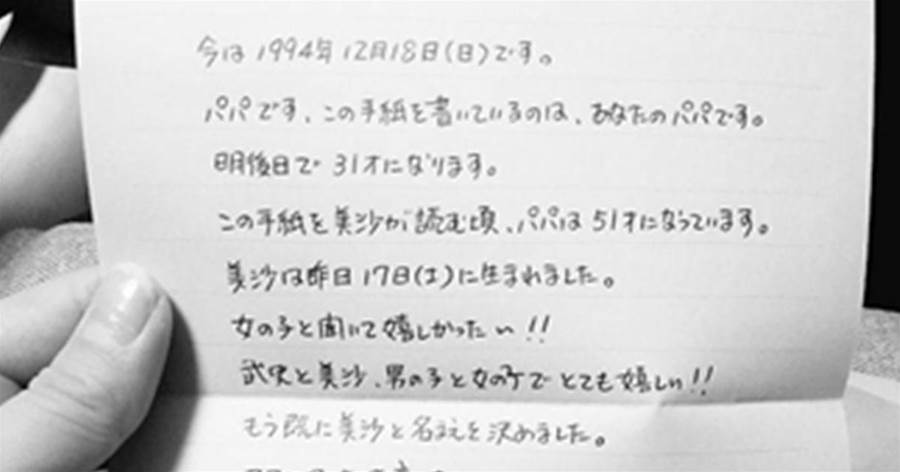 今は1994年12月18日(日)です。
パパです、この手紙を書いているのは、あなたのパパです。
明後日で31才になります。
この手紙を美沙が読む頃、パパは51才になっています。
美沙は昨日17日(土)に生まれました。
女の子と聞いて嬉しかったい!!
武史と美沙、男の子と女の子でとても嬉しい!!
もう既に美沙と名まえを決めました。